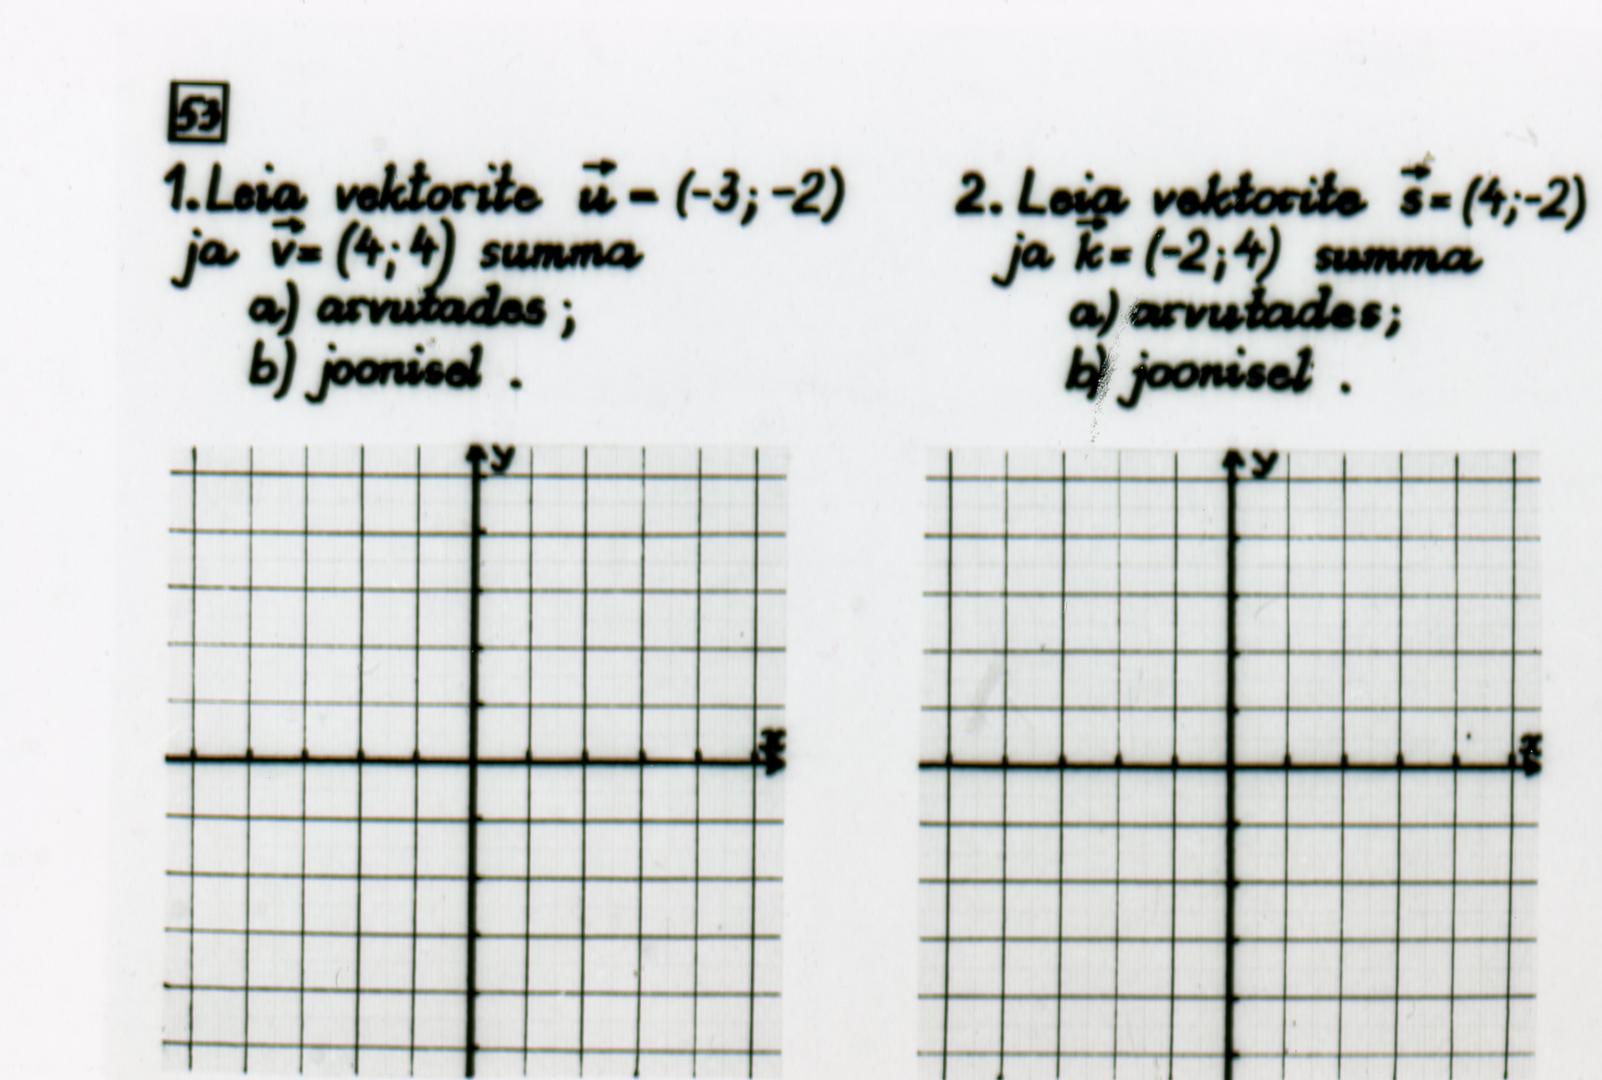 53
1. Leia vektorite u⃗ = (-3; -2)
ja v⃗ = (4; 4) summa
a) arvutades;
b) joonisel.
y
x
2. Leia vektorite s⃗ = (4; -2)
ja k⃗ = (-2; 4) summa
a) arvutades;
b) joonisel.
y
x